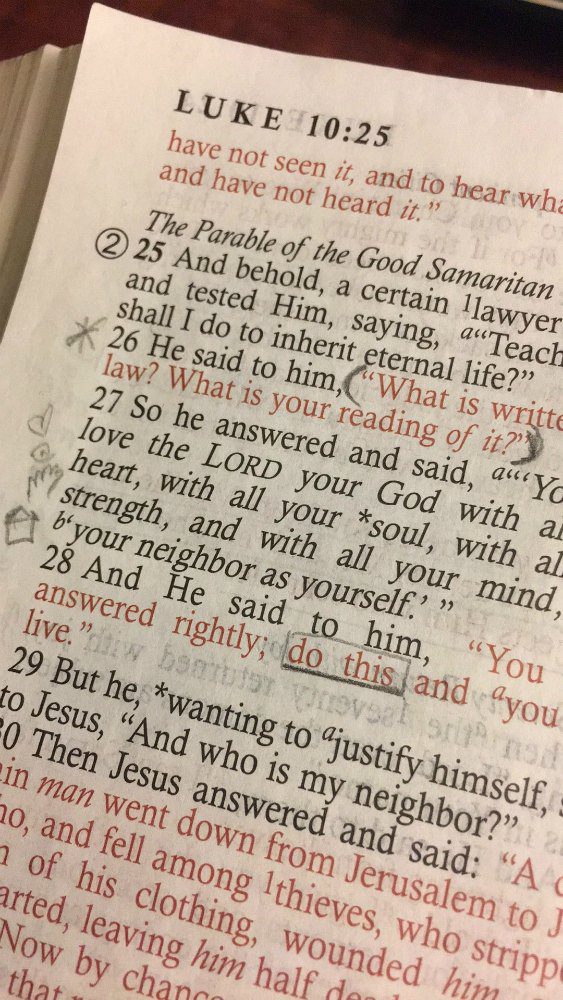 LUKE 10:25
have not seen it, and to hear wha
and have not heard it."
The Parable of the Good Samaritan
② 25 And behold, a certain ¹lawyer
and tested Him, saying, ᵃ"Teach
shall I do to inherit eternal life?"
26 He said to him, "What is writte
law? What is your reading of it?"
27 So he answered and said, ᵃ"'Yo
love the LORD your God with al
heart, with all your *soul, with all
strength, and with all your mind,
ᵇ'your neighbor as yourself.'"
28 And He said to him, "You
answered rightly; do this and ᵃyou
live."
29 But he, *wanting to ᵃjustify himself, s
to Jesus, "And who is my neighbor?"
30 Then Jesus answered and said: "A c
in man went down from Jerusalem to J
ho, and fell among ¹thieves, who strippe
of his clothing, wounded him
arted, leaving him half dea
Now by chanc
that